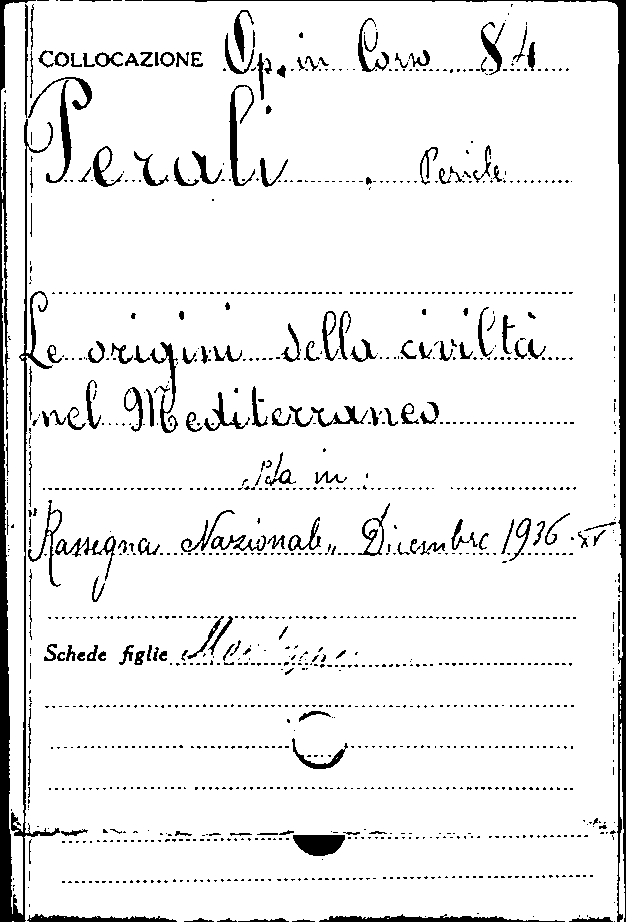 COLLOCAZIONE Op. in Corso 84
Perali, Pericle
Le origini della civiltà
nel Mediterraneo
Sta in:
"Rassegna Nazionale" Dicembre 1936-XV
Schede figlie